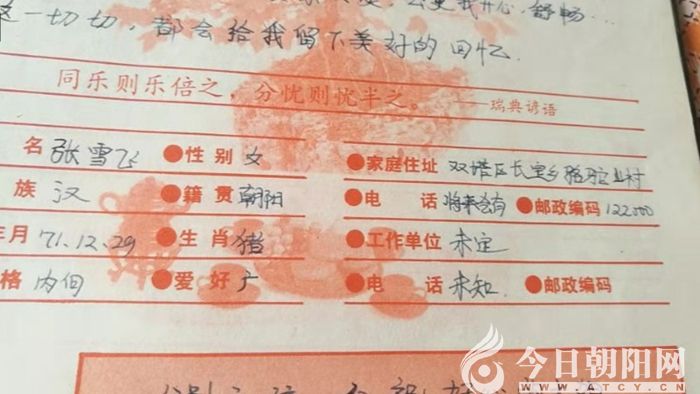 这一切切,都会给我留下美好的回忆.
同乐则乐倍之,分忧则忧半之。——瑞典谚语
名 张雪飞 ●性别 女 ●家庭住址 双塔区长宝乡骆驼山村
族 汉 ●籍贯 朝阳 ●电话 将来会有 ●邮政编码 122000
年月 71.12.29 ●生肖 猪 ●工作单位 未定
格 内向 ●爱好 广 ●电话 未知. ●邮政编码
今日朝阳网
WWW.ATCY.CN